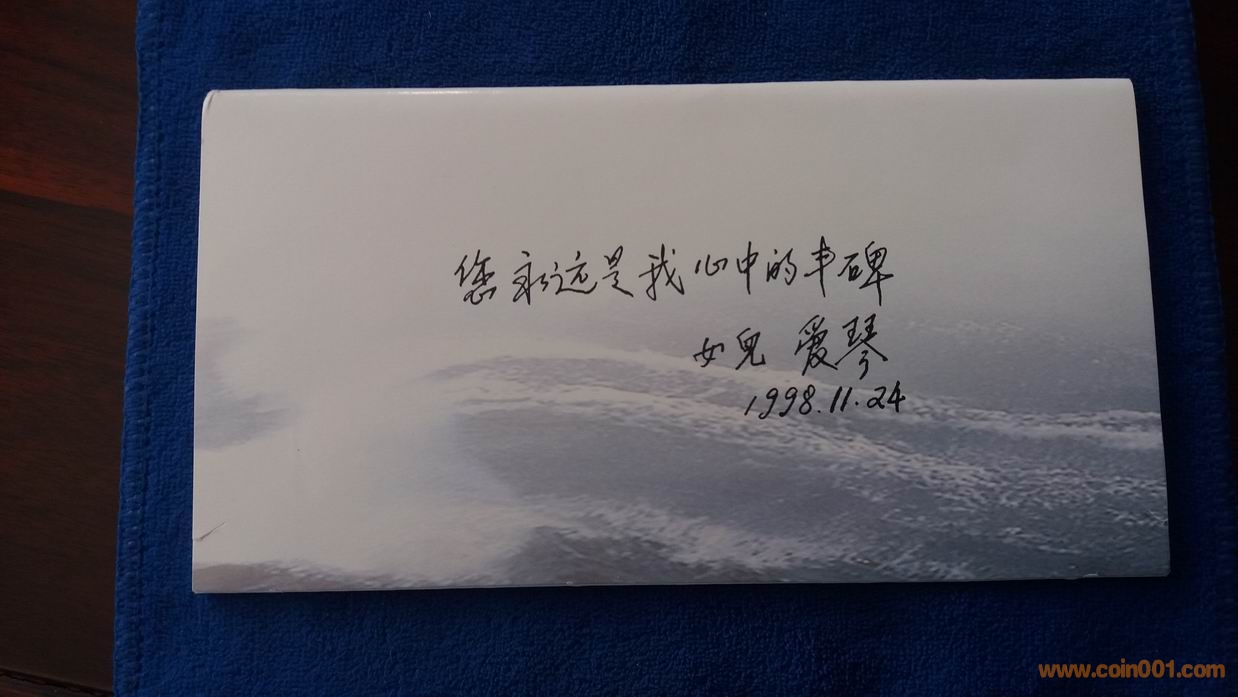 您永远是我心中的丰碑
女兒 爱琴
1998.11.24
www.coin001.com